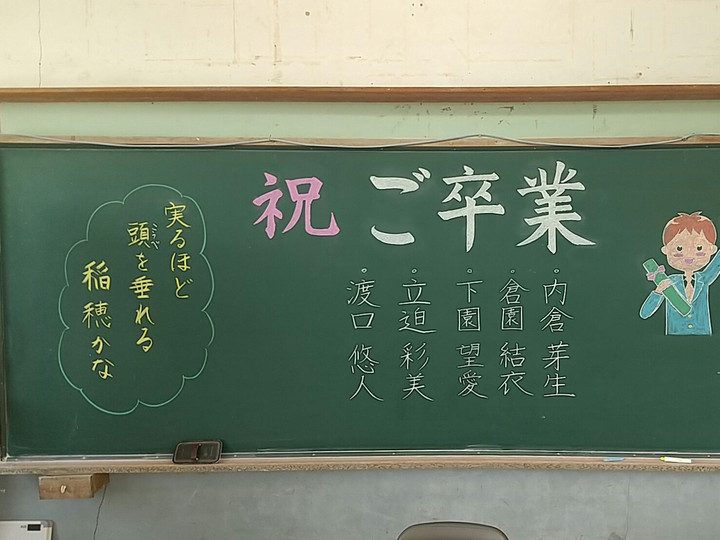 祝 ご卒業
。内倉 芽生
。倉園 結衣
。下園 望愛
。立迫 彩美
。渡口 悠人
実るほど
頭を垂れる
稲穂かな